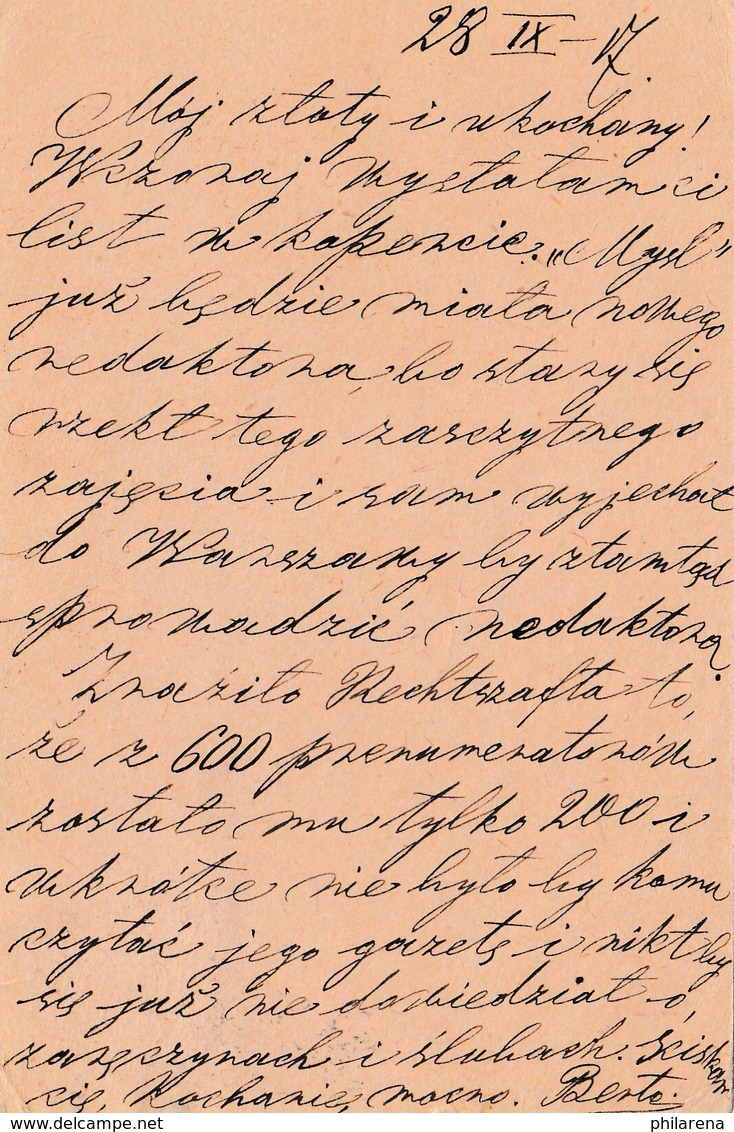 28 IX – 17.
Mój złoty i ukochany!
Wczoraj wysłałam ci
list w kopercie. „Myśl"
już będzie miała nowego
redaktora, bo stary się
rzekł tego zaszczytnego
zajęcia i sam wyjechał
do Warszawy by ztamtąd
sprowadzić redaktora.
Zraziło Rechtszafta to,
że z 600 prenumeratorów
zostało mu tylko 200 i
wkrótce nie było by komu
czytać jego gazetę i nikt by
się już nie dowiedział o
zaręczynach i ślubach. Ściskam
cię, Kochanie, mocno. Berto.
philarena